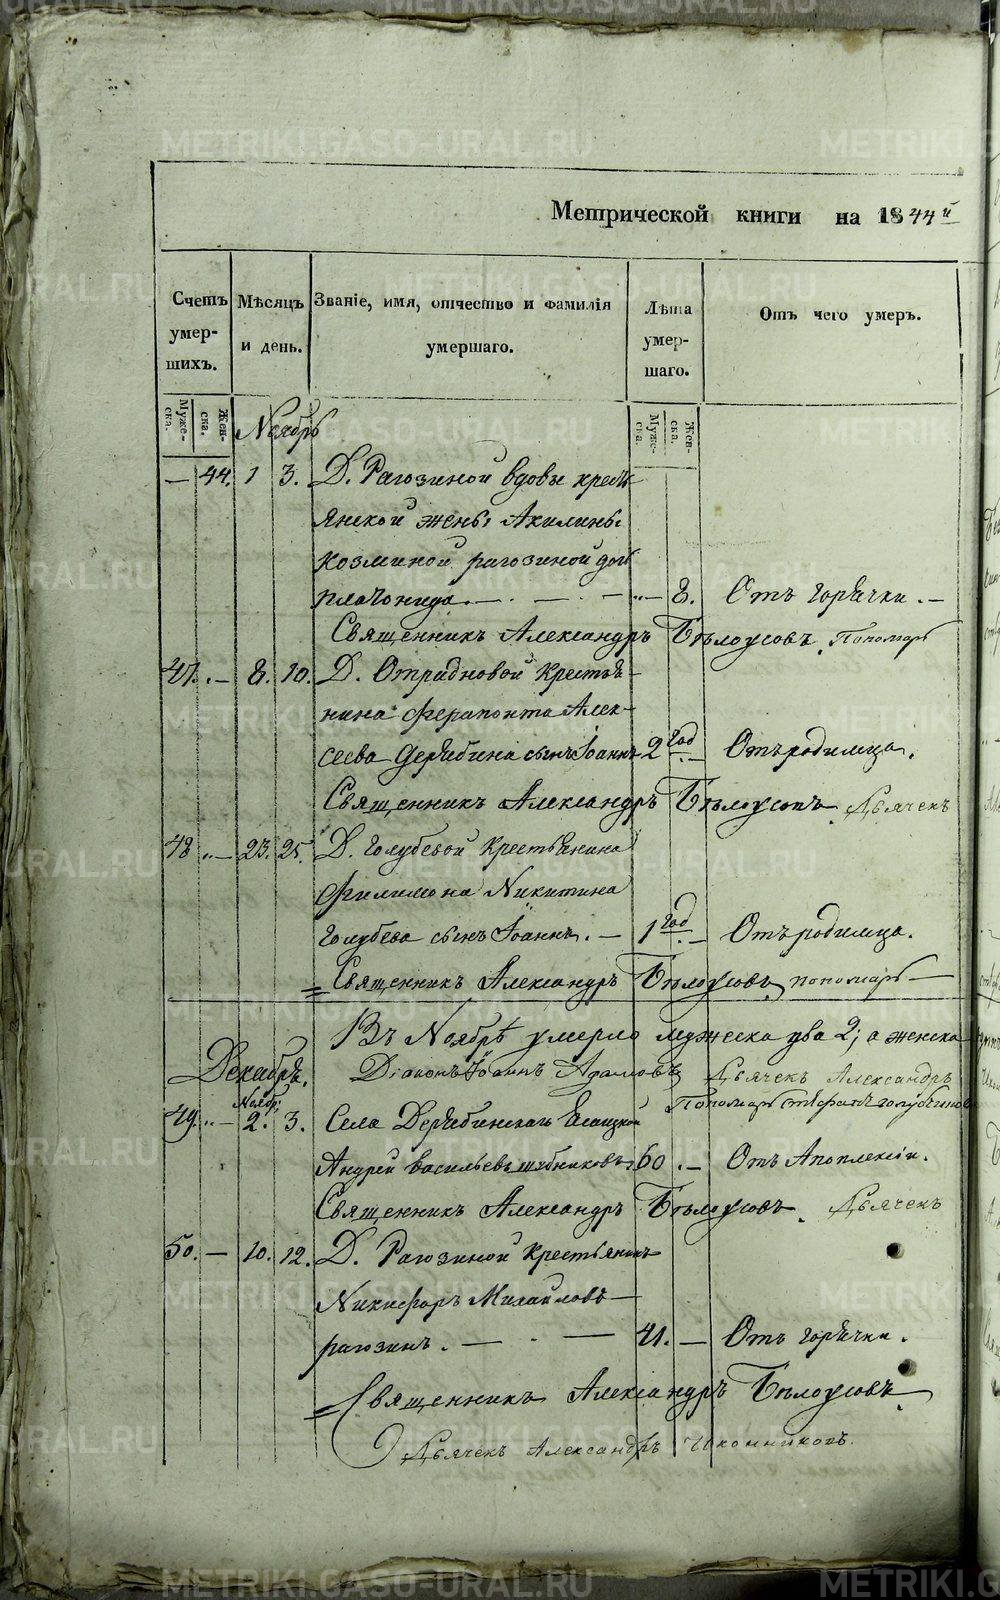 Метрической книги на 1844й
Счетъ умер-шихъ. Мѣсяцъ и день. Званіе, имя, отчество и фамилія умершаго. Лѣта умер-шаго. Отъ чего умеръ.
Муже-ска. Жен-ска. Муже-ска. Жен-ска.
Ноябрь
— 44. 1 3. Д. Рагозиной вдовы кресть-
янской жены Акилины
Козминой рагозиной дочь
8. Отъ горячки. —
Священникъ Александръ Бѣлоусовъ. Пономарь
47. „ — 8. 10. Д. Отрадновой Крестья-
нина Ферапонта Алек-
сеева Дерябина сынъ Іоаннъ 2 год — Отъ родимца.
Священникъ Александръ Бѣлоусовъ. Дьячекъ
48 „ — 23. 25. Д. Голубевой Крестьянина
Филимона Никитина
Голубева сынъ Іоаннъ. — 1 год — Отъ родимца.
Священникъ Александръ Бѣлоусовъ, пономарь —
Въ Ноябрѣ умерло мужеска два 2; а женска
Декабрь. Діаконъ Іоаннъ Адамовъ Дьячекъ Александръ
Пономарь Стефанъ
Ноябр:
49. „ — 2. 3. Села Дерябинскаго
Андрей Васильевъ 60 . — Отъ Апоплексіи.
Священникъ Александръ Бѣлоусовъ. Дьячекъ
50. — 10. 12. Д. Рагозиной Крестьянинъ
Никифоръ Михайловъ —
рагозинъ. — . — 41. — Отъ горячки.
Священникъ Александръ Бѣлоусовъ.
Дьячекъ Александръ Иконниковъ.
METRIKI.GASO-URAL.RU